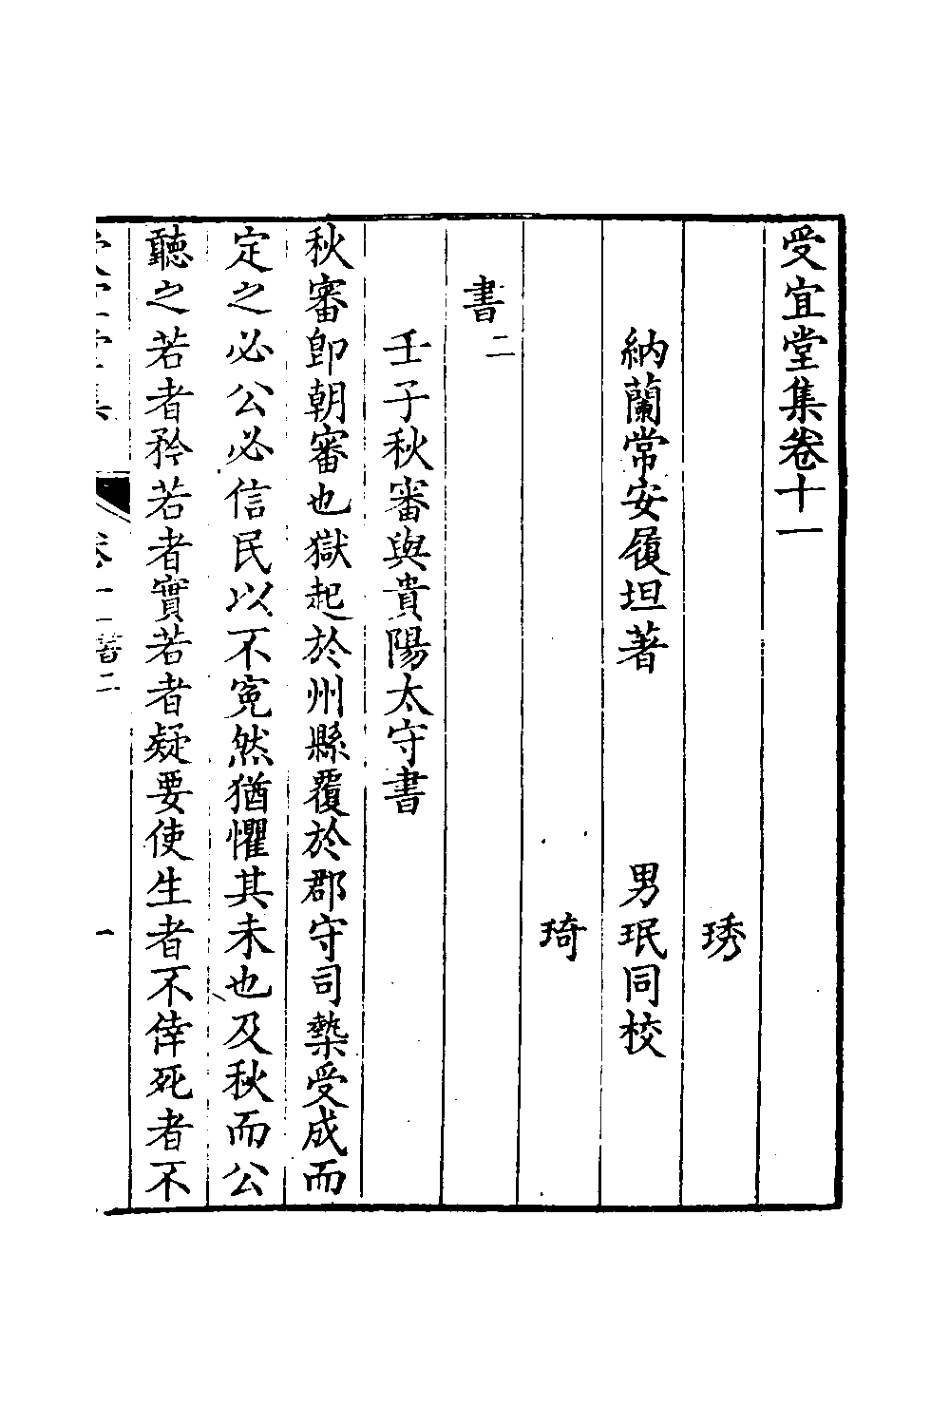 受宜堂集卷十一
琇
納蘭常安履坦著 男珉同校
琦
書二
壬子秋審與貴陽太守書
秋審卽朝審也獄起於州縣覆於郡守司槷受成而
定之必公必信民以不寃然猶懼其未也及秋而公
聽之若者矜若者實若者疑要使生者不倖死者不
卷十一 書二 一